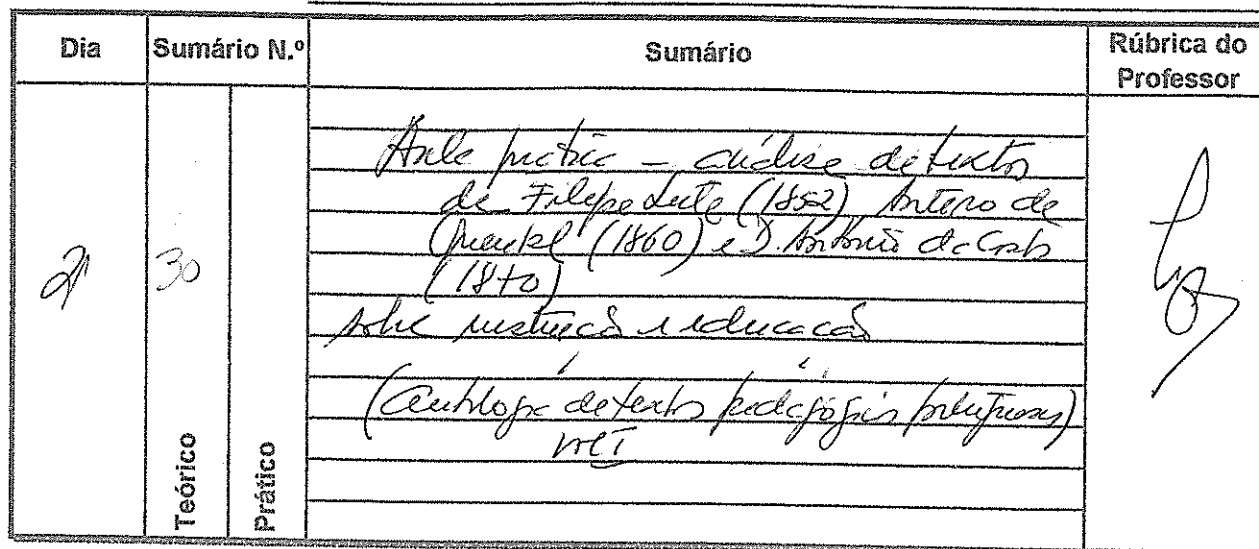 Dia
Sumário N.º
Sumário
Rúbrica do
Professor
21
30
Teórico
Prático
Aula prática – análise de textos
de Filipe Leite (1852) Antero de
Quental (1860) e D. António da Costa
(1870)
sobre instrução e educação
(Antologia de textos pedagógicos portugueses)
vol I